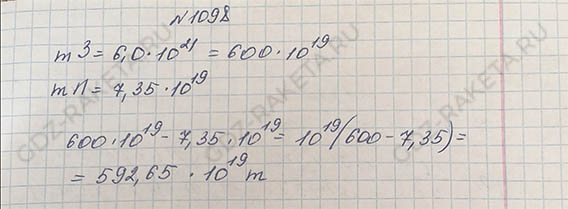 №1098
m З = 6,0 · 10²¹ = 600 · 10¹⁹
m Л = 7,35 · 10¹⁹
600 · 10¹⁹ - 7,35 · 10¹⁹ = 10¹⁹(600 - 7,35) =
= 592,65 · 10¹⁹ т
GDZ-RAKETA.RU
GDZ-RAKETA.RU
GDZ-RAKETA.RU